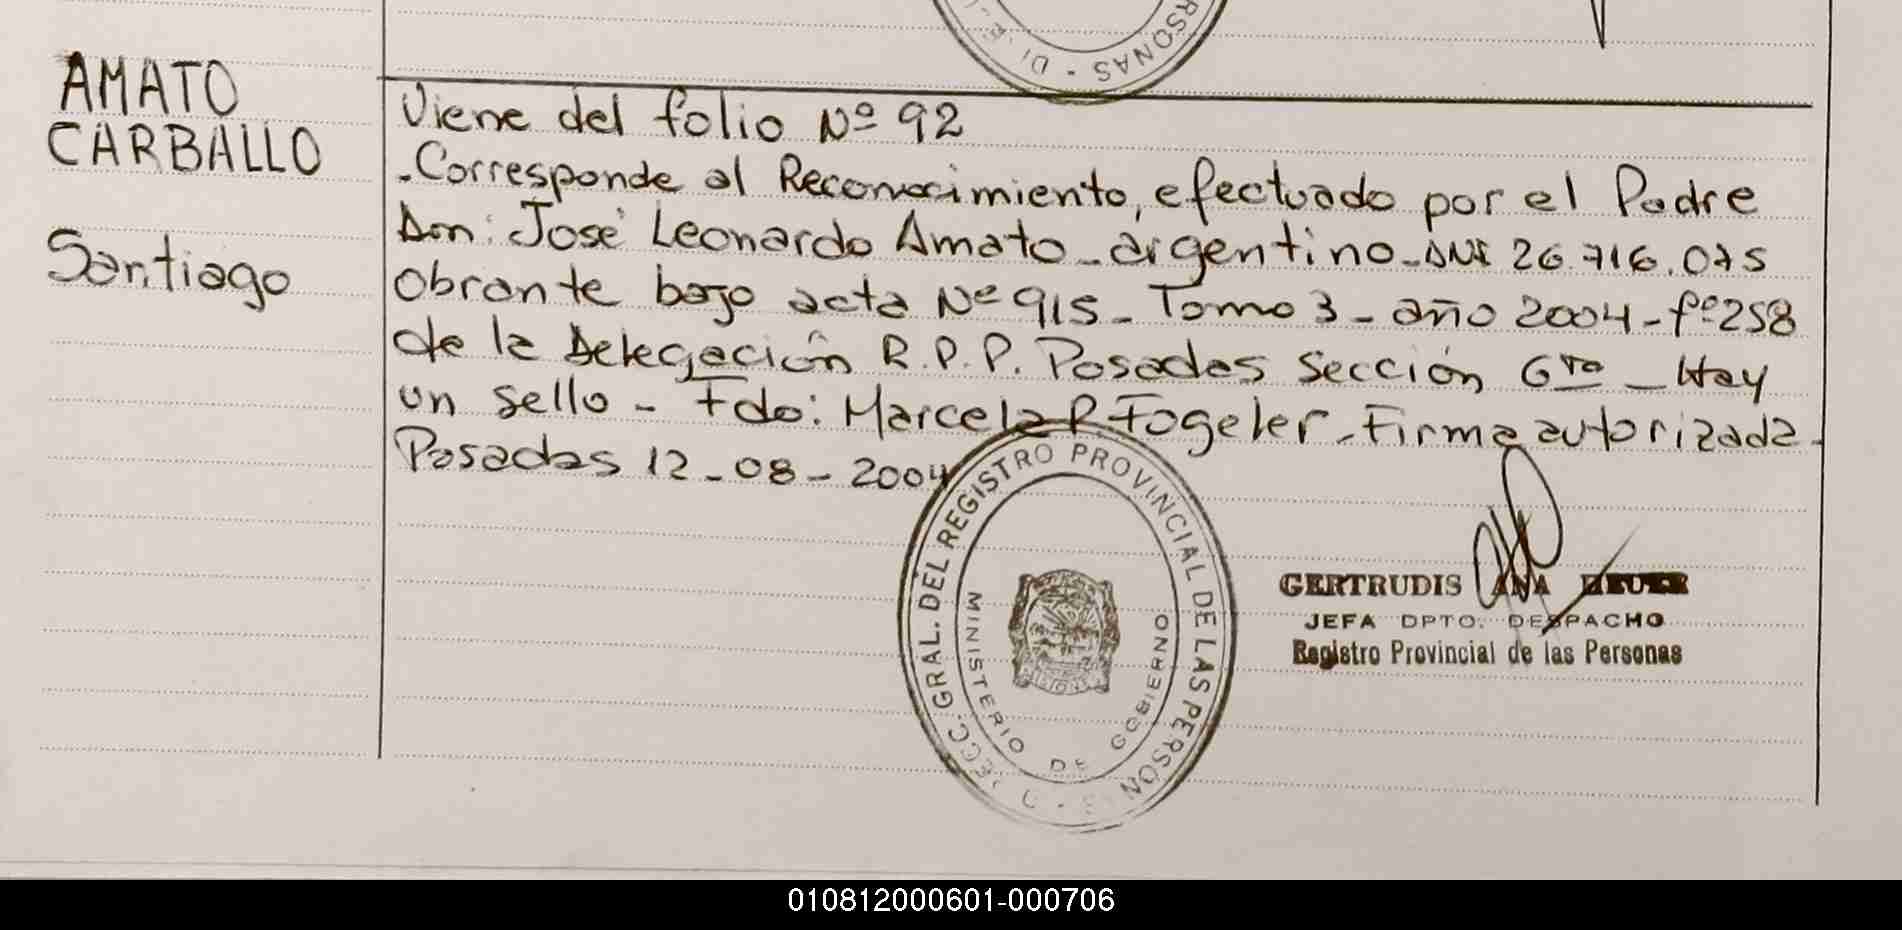 AMATO
CARBALLO
Santiago
Viene del folio Nº 92
.Corresponde al Reconocimiento, efectuado por el Padre
Don: José Leonardo Amato - argentino - DNI 26.716.075
Obrante bajo acta Nº 915 - Tomo 3 - año 2004 - fº 258
de la Delegación R.P.P. Posadas Sección 6ta - Hay
un sello - Fdo: Marcela R. Fogeler - Firma autorizada -
Posadas 12-08-2004
RSONAS - DI
GRAL. DEL REGISTRO PROVINCIAL DE LAS PERSON
MINISTERIO DE GOBIERNO
GERTRUDIS ANA
JEFA DPTO. DESPACHO
Registro Provincial de las Personas
010812000601-000706